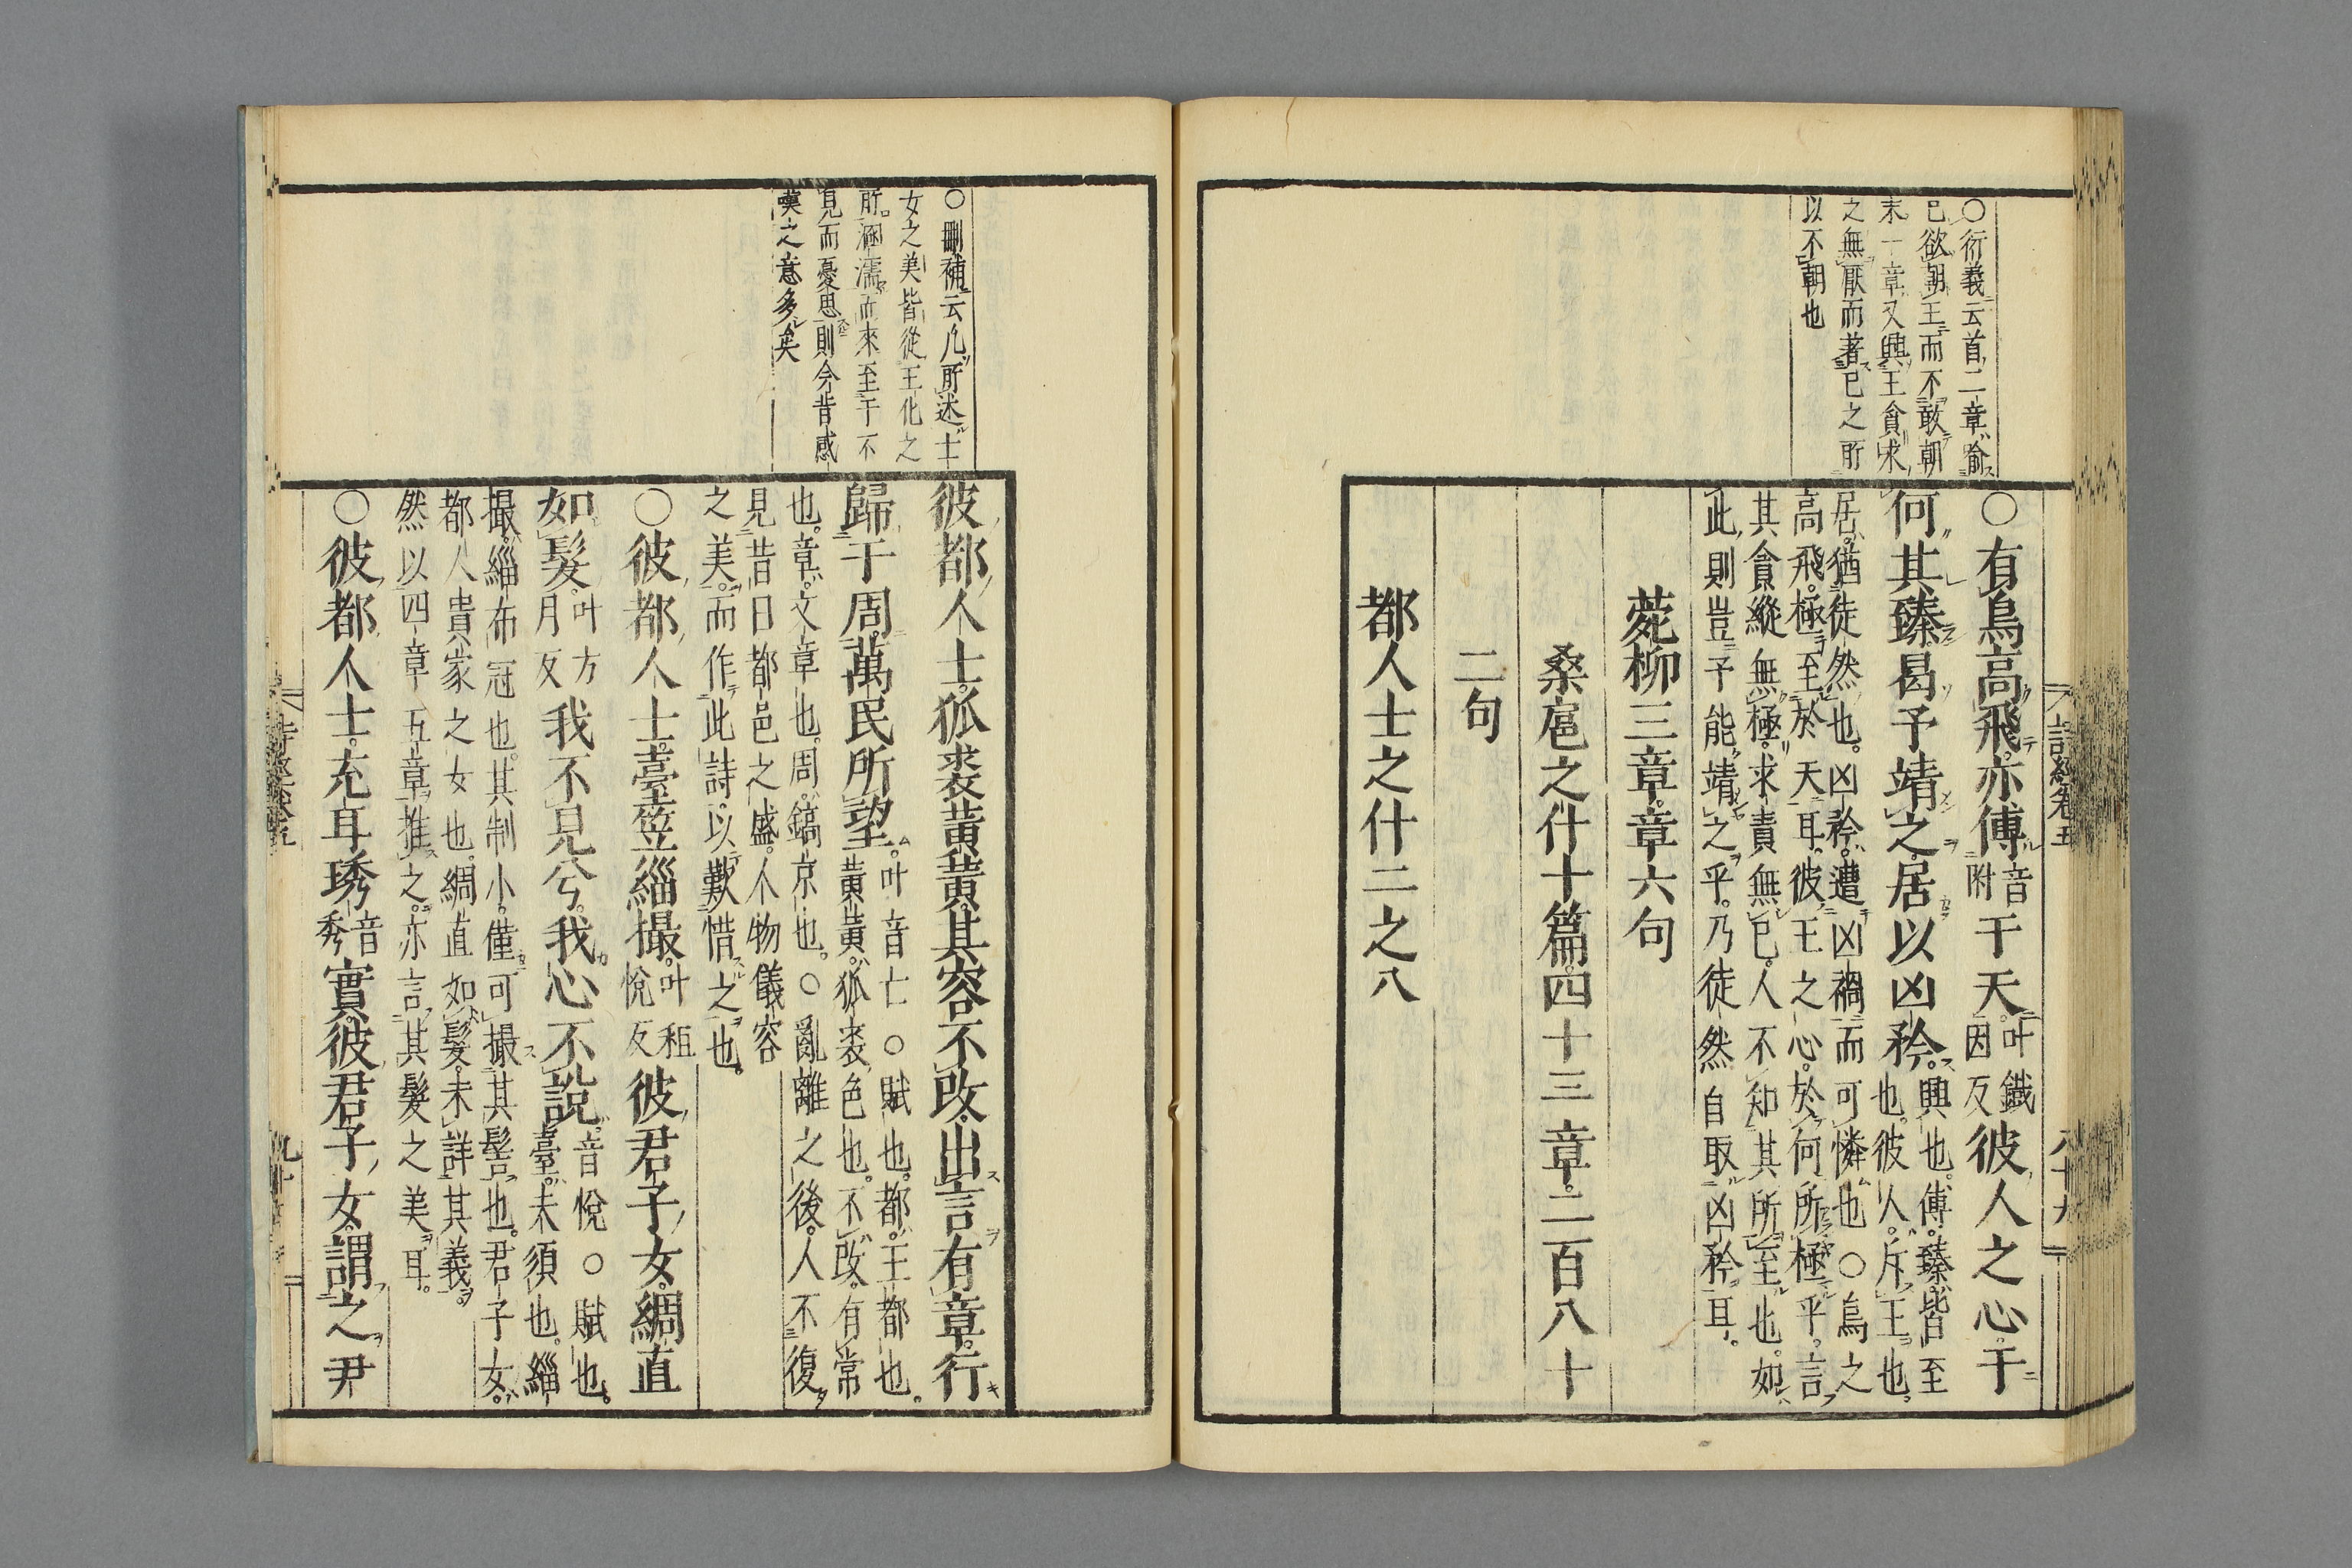 ○衍義云首二章喻
已欲朝王而不敢朝
末一章又興王貪求
之無厭而著已之所
以不朝也
○有鳥高飛亦傅音附于天叶鐵因反彼人之心于
何其臻曷予靖之居以凶矜興也傅臻皆至
也彼人斥王也
居猶徒然也凶矜遭凶禍而可憐也○鳥之
高飛極至於天耳彼王之心於何所極乎言
其貪縱無極求責無已人不知其所至也如
此則豈予能靖之乎乃徒然自取凶矜耳
菀柳三章章六句
桑扈之什十篇四十三章二百八十
二句
都人士之什二之八
詩經卷五
八十九
○刪補云凡所述士
女之美皆從王化之
所涵濡而來至于不
見而憂思則今昔感
嘆之意多矣
彼都人士狐裘黃黃其容不改出言有章行
歸于周萬民所望叶音亡○賦也都王都也
黃黃狐裘色也不改有常
也章文章也周鎬京也○亂離之後人不復
見昔日都邑之盛人物儀容
之美而作此詩以歎惜之也
○彼都人士臺笠緇撮叶租悅反彼君子女綢直
如髮叶方月反我不見兮我心不說音悅○賦也
臺夫須也緇
撮緇布冠也其制小僅可撮其髻也君子女
都人貴家之女也綢直如髮未詳其義
然以四章五章推之亦言其髮之美耳
○彼都人士充耳琇音秀實彼君子女謂之尹
詩經卷五
九十